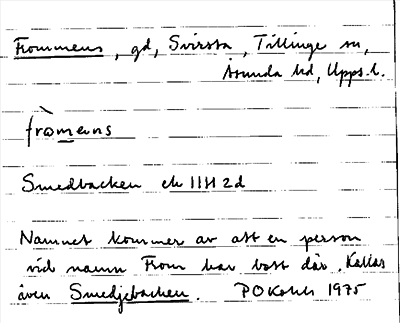 Frommens, gd, Svirsta, Tillinge sn,
Åsunda hd, Upps. l.
fròmens
Smedbacken ek 11H 2d
Namnet kommer av att en person
vid namn From har bott där. Kallas
även Smedjebacken. PO 1975